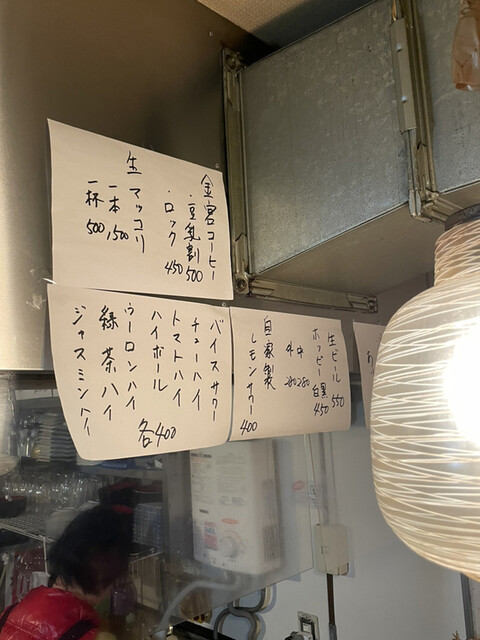 金宮コーヒー
・豆乳割 500
・ロック 450
生マッコリ
一本 1,500
一杯 500
生ビール 550
ホッピー 白黒 450
中 280
外 280
自家製
レモンサワー 400
バイスサワー
チューハイ
トマトハイ
ハイボール
ウーロンハイ
緑茶ハイ
ジャスミンハイ
各400